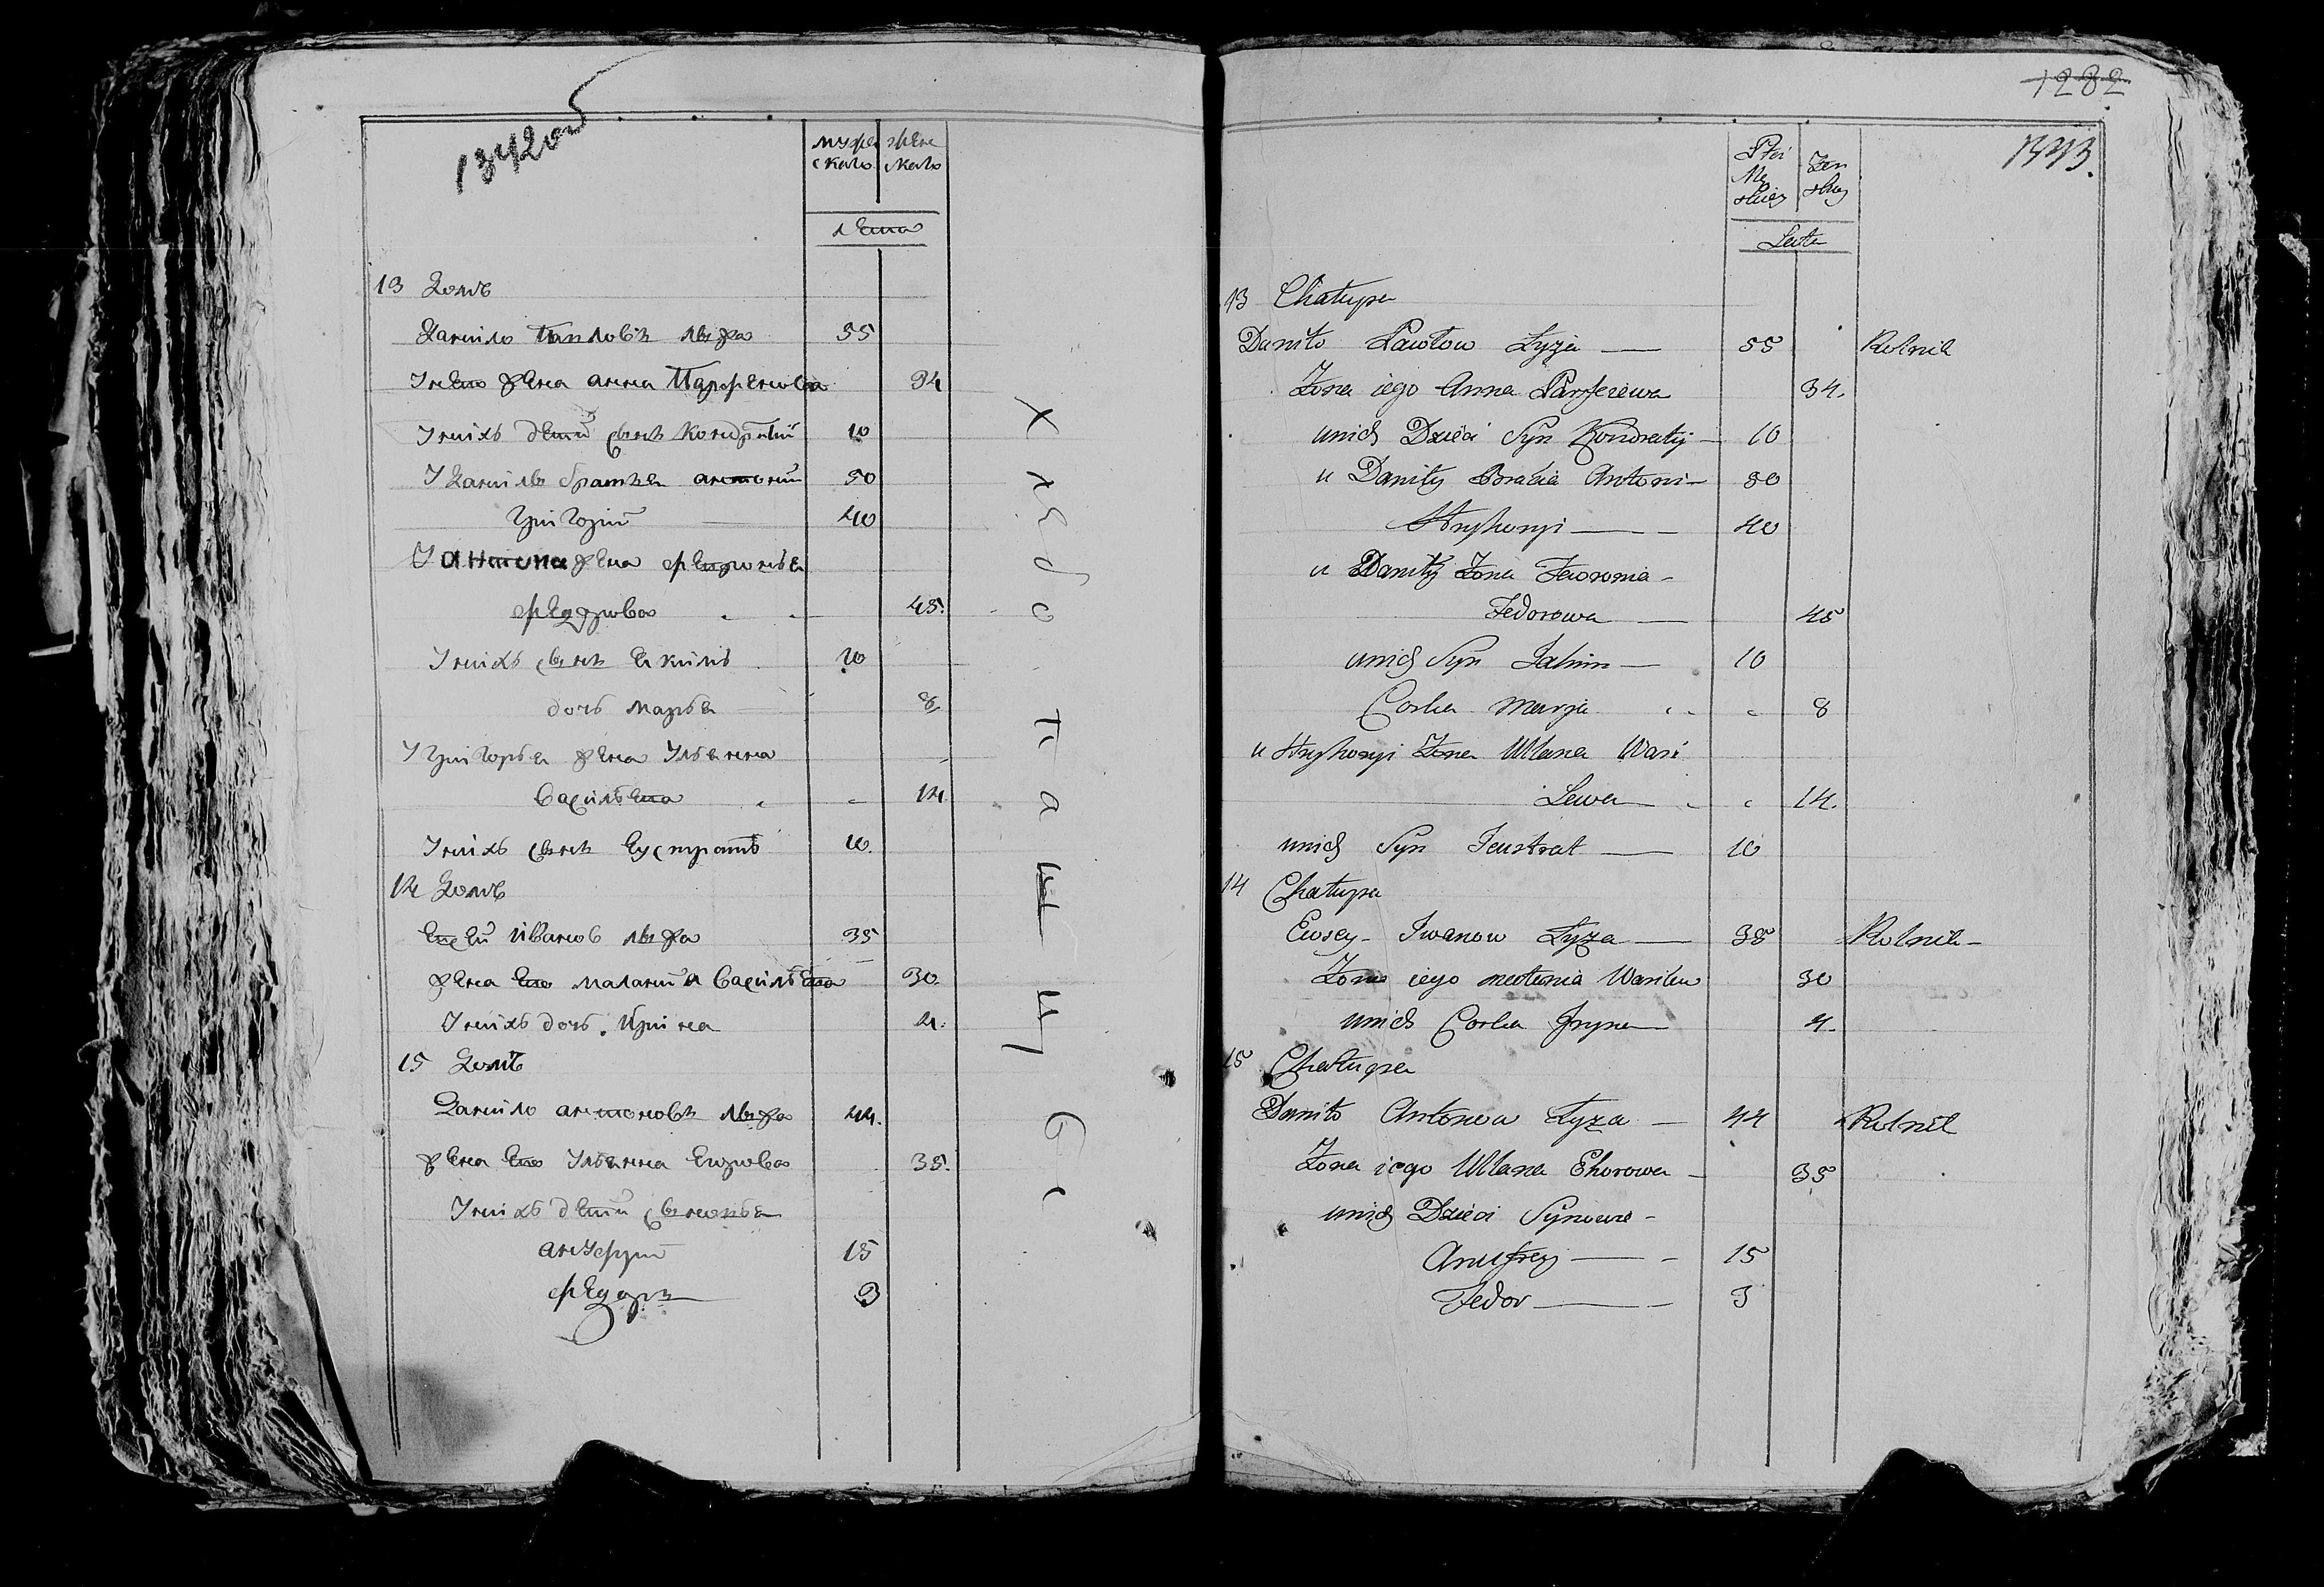 1342об
мужескаго женскаго
лета
13 Домъ
Данило Павловъ Лыжа 55
У него жена анна Парфенова 34
У нихъ детей сынъ Кондратий 10
У Данилы братья антоний 50
Григорий 40
У Антона жена февронья
федорова 45.
У нихъ сынъ Еким 10
дочь марья 8
У Григорья жена Ульянна
Васильева 14.
У нихъ сынъ Еустратъ 10.
14 Домъ
Евсей Иванов Лыжа 35
жена его маланий Васильева 30.
У нихъ дочь Ирина 4.
15 Домъ
Данило антоновъ Лыжа 44.
жена его Ульянна Егорова 35.
У нихъ детей сыновья
ануфрий 15
федоръ 3
Хлебопашцы
1282
1343.
Płci Męskiey Żenskiey
Leta
13 Chałupa
Daniło Pawłow Łyża — 55 Rolnik
Żona iego Anna Parfeiewa 34.
unich Dzieci Syn Kondratij — 10
u Daniły Bracia Antoni — 50
Hryhoryi — 40
u Daniły Żona Fewronia -
Fedorowa — 45
unich Syn Jakim — 10
Corka Marja 8
u Hryhoryi Żona Ullana Wasi
Lewa 14.
unich Syn Jeustrat — 10
14 Chałupa
Ewsey Iwanow Łyża — 35 Rolnik -
Żona iego Mełania Wasilew 30
unich Corka Iryna — 4.
15 Chałupa
Daniło Antonow Łyża — 44 Rolnik
Żona iego Ullana Ehorowa - 35
unich Dzieci Synowie -
Anufrey — 15
Fedor — 3